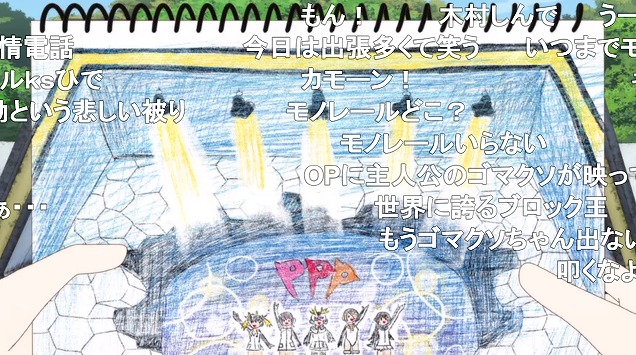 もん！ 木村しんで うー
情電話 今日は出張多くて笑う いつまでモ
ルksひで カモーン！
動という悲しい被り モノレールどこ？
モノレールいらない
OPに主人公のゴマクソが映って
ぁ・・・ 世界に誇るブロック王
もうゴマクソちゃん出ない
叩くなよ
PPP